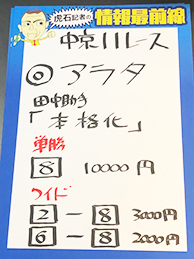 虎石記者の
情報最前線
中京11レース
◎アラタ
田中助手
「本格化」
単勝
8 10000円
ワイド
2-8 3000円
6-8 2000円